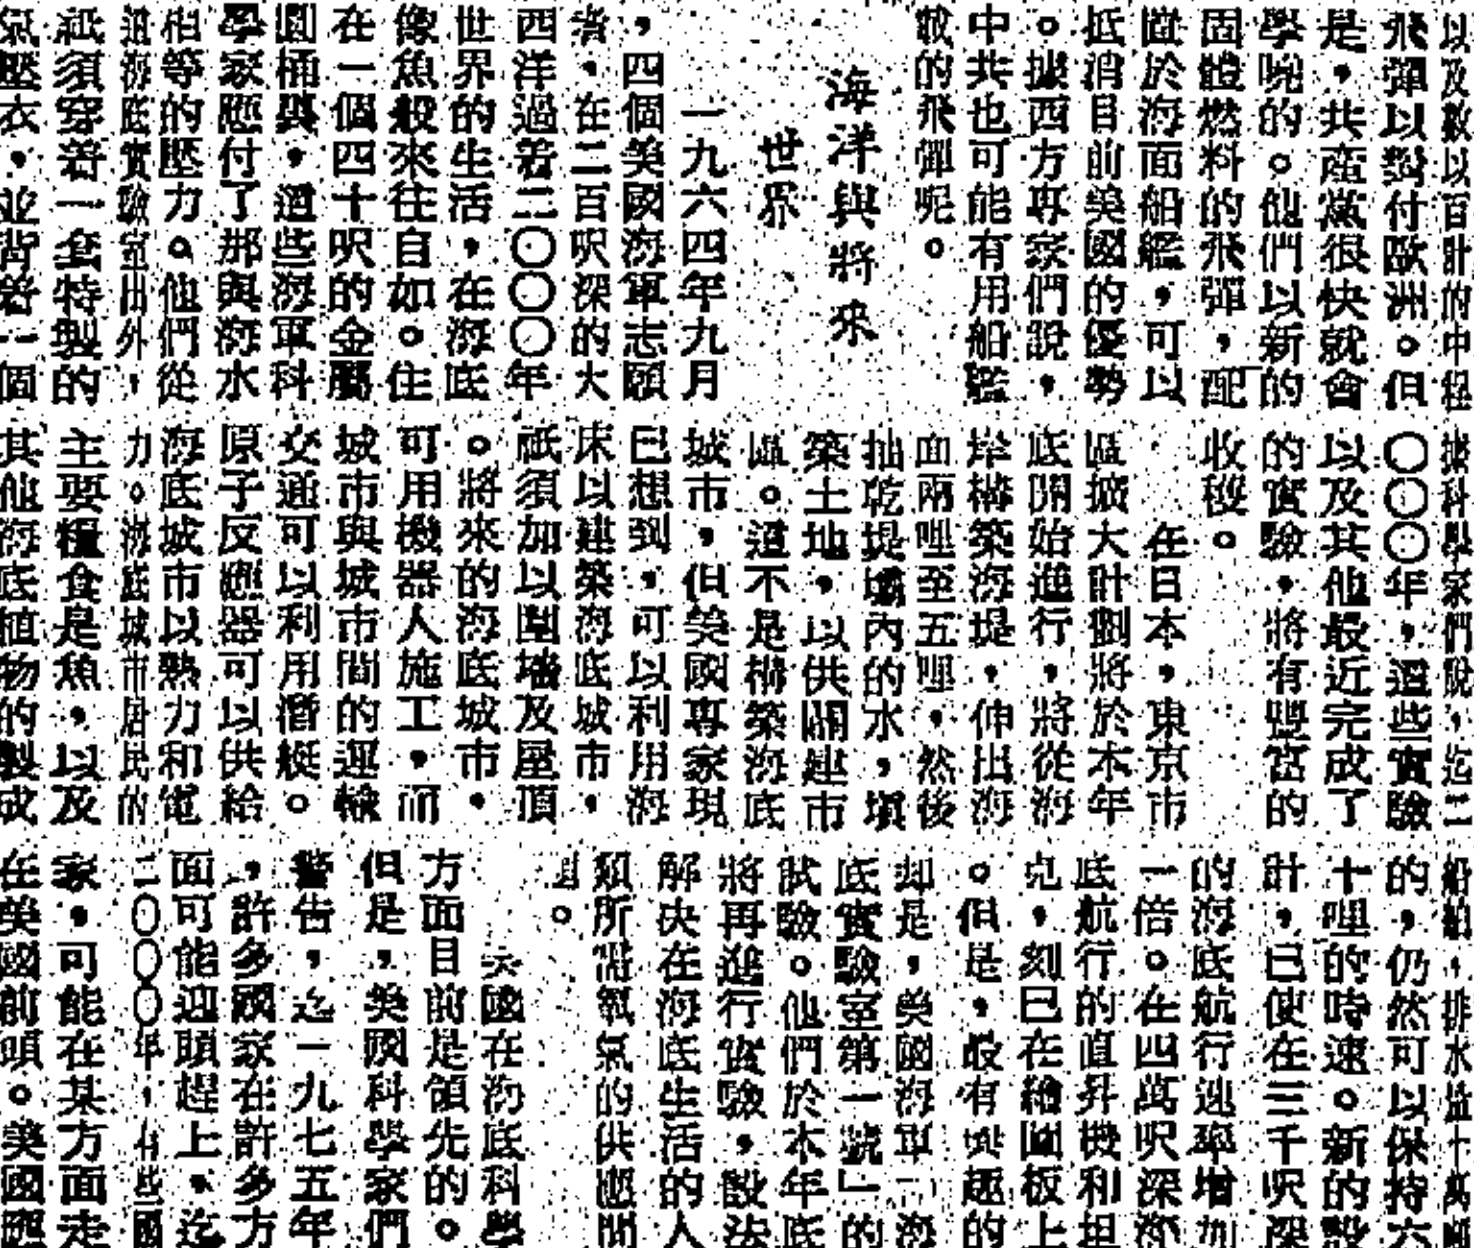 以及數以百計的中程
飛彈以對付歐洲。但
是，共產黨很快就會
學晚的。他們以新的
固體燃料的飛彈，配
置於海面船艦，可以
抵消目前美國的優勢
。據西方專家們說，
中共也可能有用船艦
載的飛彈呢。
海洋與將來
世界
一九六四年九月
，四個美國海軍志願
者，在二百呎深的大
西洋過着二〇〇〇年
世界的生活，在海底
像魚般來往自如。住
在一個四十呎的金屬
圓桶裏，這些海軍科
學家應付了那與海水
相等的壓力。他們從
這海底實驗室出外，
祇須穿着一套特製的
氣壓衣，並背着一個
據科學家們說，迄二
〇〇〇年，這些實驗
以及其他最近完成了
的實驗，將有豐富的
收穫。
在日本，東京市
區擴大計劃將於本年
底開始進行，將從海
岸構築海堤，伸出海
面兩哩至五哩，然後
抽乾堤壩內的水，填
築土地，以供闢建市
區。這不是構築海底
城市，但美國專家現
已想到，可以利用海
床以建築海底城市，
祇須加以圍墻及屋頂
。將來的海底城市，
可用機器人施工，而
城市與城市間的運輸
交通可以利用潛艇。
原子反應器可以供給
海底城市以熱力和電
力。海底城市居民的
主要糧食是魚，以及
其他海底植物的製成
船舶，排水量十萬噸
的，仍然可以保持六
十哩的時速。新的設
計，已使在三千呎深
的海底航行速率增加
一倍。在四萬呎深海
底航行的直昇機和坦
克，刻已在繪圖板上
。但是，最有興趣的
却是，美國海軍「海
底實驗室第一號」的
試驗。他們於本年底
將再進行實驗，設法
解決在海底生活的人
類所需氧氣的供應問
題。
美國在海底科學
方面目前是領先的。
但是，美國科學家們
警告，迄一九七五年
，許多國家在許多方
面可能迎頭趕上，迄
二〇〇〇年，有些國
家，可能在某方面走
在美國前頭。美國應